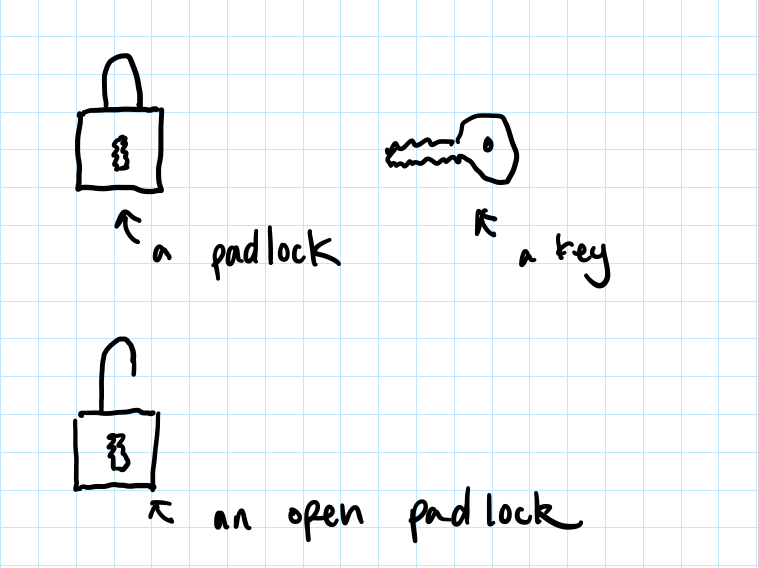 a padlock
a key
an open padlock